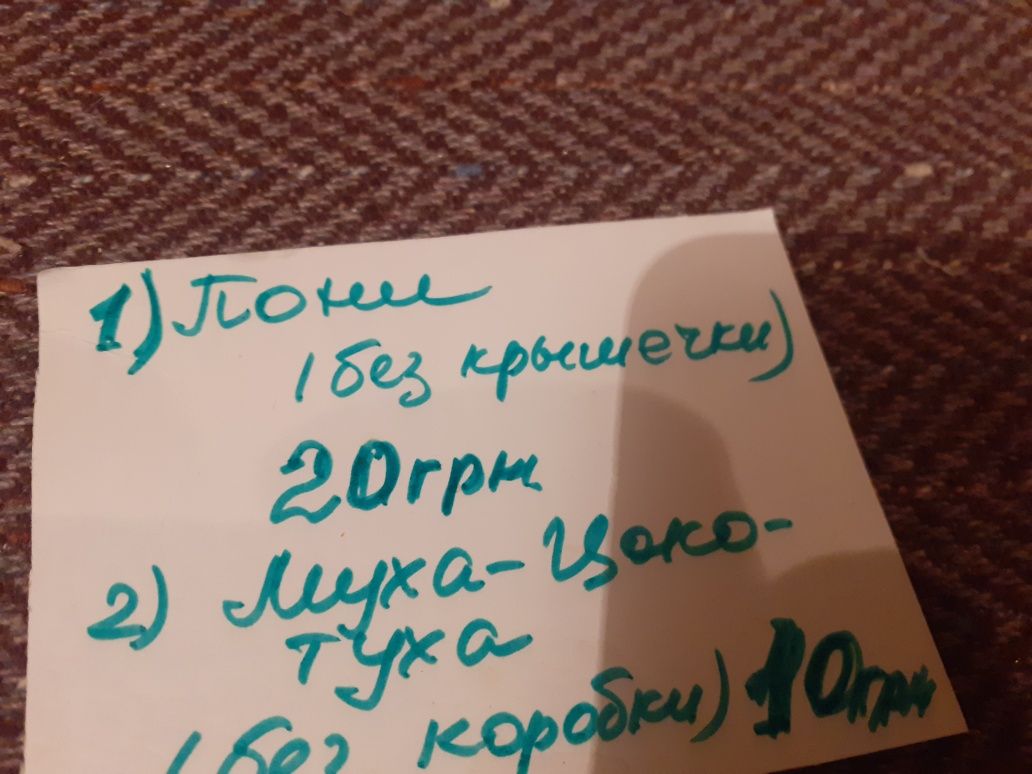 1) Пони
(без крышечки)
20грн
2) Муха-Цоко-
туха
(без коробки) 10грн